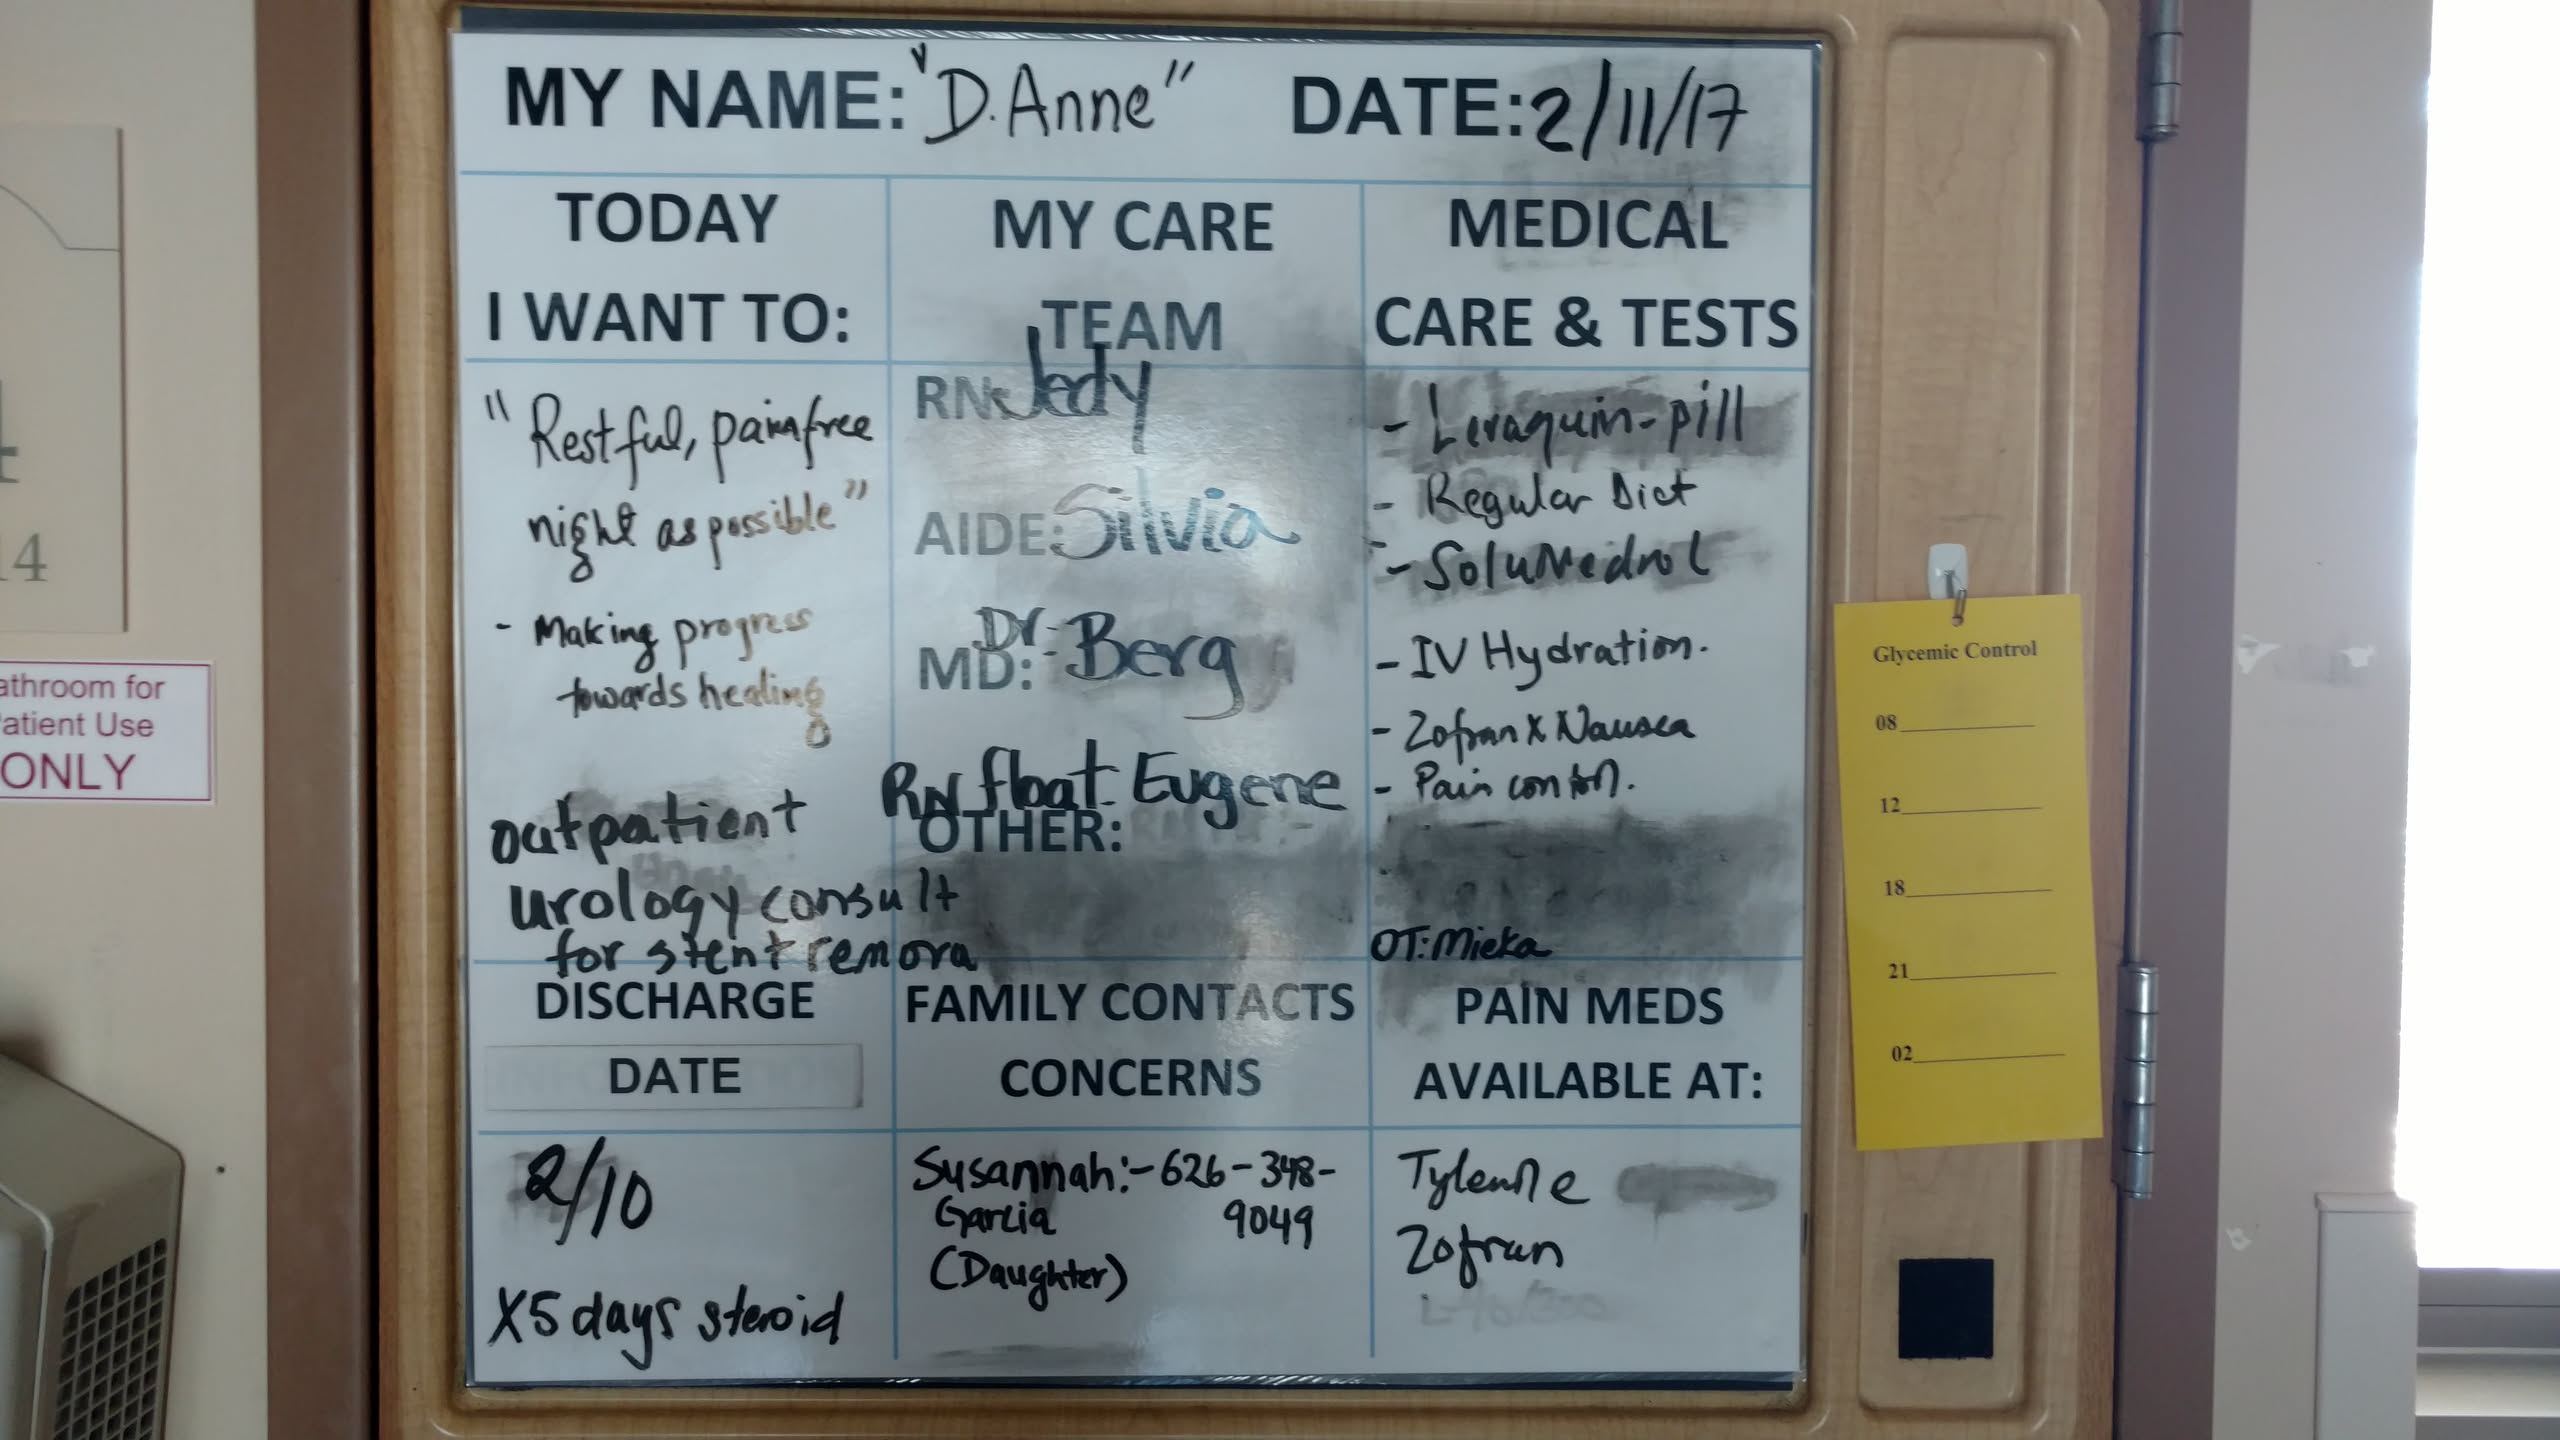 MY NAME: "D. Anne" DATE: 2/11/17
TODAY
I WANT TO:
"Restful, painfree
night as possible"
- Making progress
towards healing
outpatient
urology consult
for stent remova
MY CARE
TEAM
RN: Jedy
AIDE: Silvia
MD: Dr. Berg
RN float: Eugene
OTHER:
MEDICAL
CARE & TESTS
- Levaquin - pill
- Regular Diet
- SoluMedrol
- IV Hydration.
- Zofran x Nausea
- Pain
OT: Mieka
DISCHARGE
DATE
2/10
X5 days steroid
FAMILY CONTACTS
CONCERNS
Susannah:-626-348-
Garcia 9049
(Daughter)
PAIN MEDS
AVAILABLE AT:
Zofran
Glycemic Control
08
12
18
21
02
4
14
athroom for
atient Use
ONLY